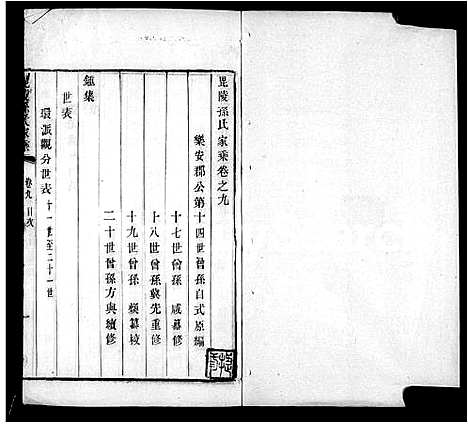 毘陵孫氏家乘卷之九
樂安郡公第十四世曾孫自式原編
十七世曾孫 咸纂修
十八世曾孫冀先重修
十九世曾孫 纂校
二十世曾孫方與續修
集
世表
環派觀分世表十一世至二十一世
卷九 目次
一